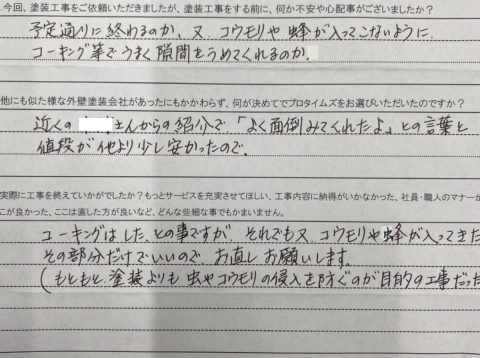 .今回、塗装工事をご依頼いただきましたが、塗装工事をする前に、何か不安や心配事がございましたか？
予定通りに終めるのか、又 コウモリや 蜂が入ってこないように
コーキング等で うまく隙間をうめてくれるのか.
他にも似た様な外壁塗装会社があったにもかかわらず、何が決めてでプロタイムズをお選びいただいたのですか？
近くの さんからの紹介で「よく面倒みてくれたよ」との言葉と
値段が他より少し安かったので.
実際に工事を終えていかがでしたか？もっとサービスを充実させてほしい、工事内容に納得がいかなかった、社員・職人のマナーが
こが良かった、ここは直した方が良いなど、どんな些細な事でもかまいません。
コーキングはした、との事ですが、それでも又 コウモリや蜂が入ってきた
その部分だけでいいので お直し お願いします。
(もともと、塗装よりも 虫やコウモリの侵入を防ぐのが目的の工事だった